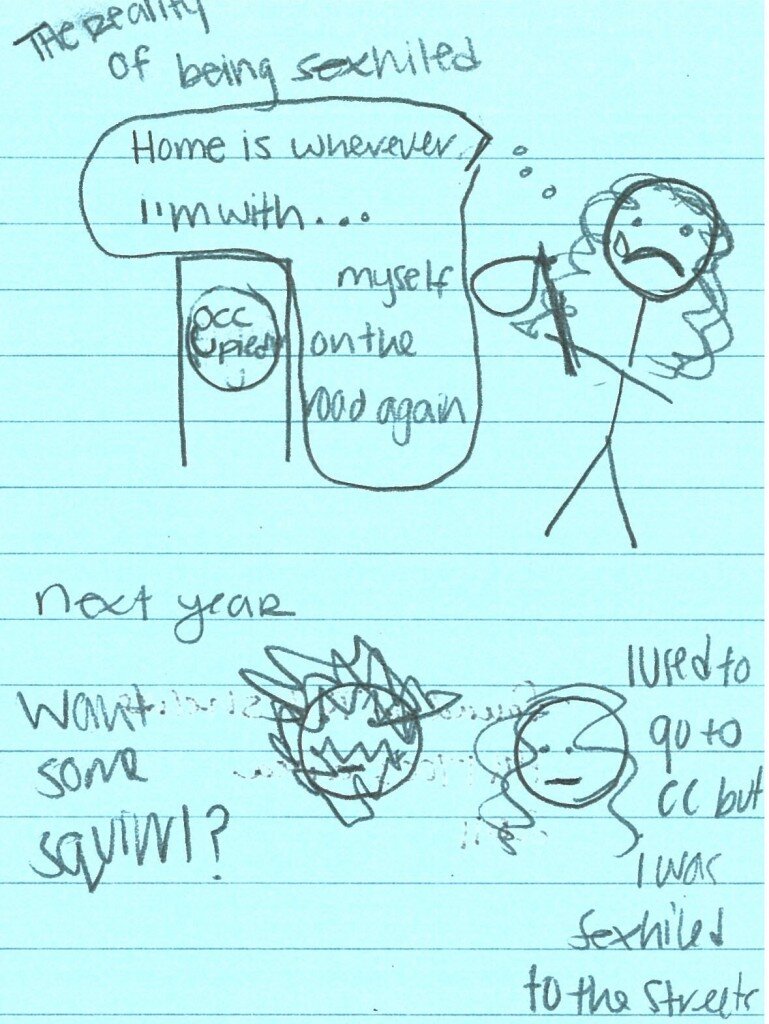 THE Reality
of being sexhiled
Home is wherever
I'm with...
myself
on the
road again
OCC
upied
next year
Want
some
squirrl?
I used to
go to
CC but
I was
sexhiled
to the streets